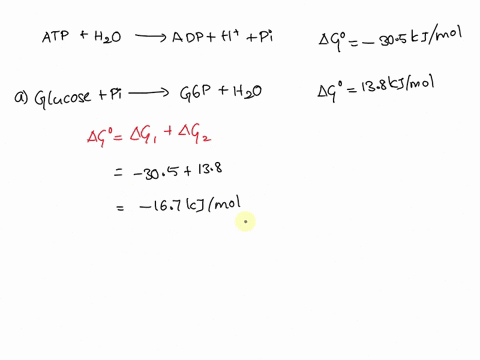 ATP + H2O ⟶ ADP + H+ + Pi ΔG° = −30.5 kJ/mol
a) Glucose + Pi ⟶ G6P + H2O ΔG° = 13.8 kJ/mol
ΔG° = ΔG1 + ΔG2
= −30.5 + 13.8
= −16.7 kJ/mol